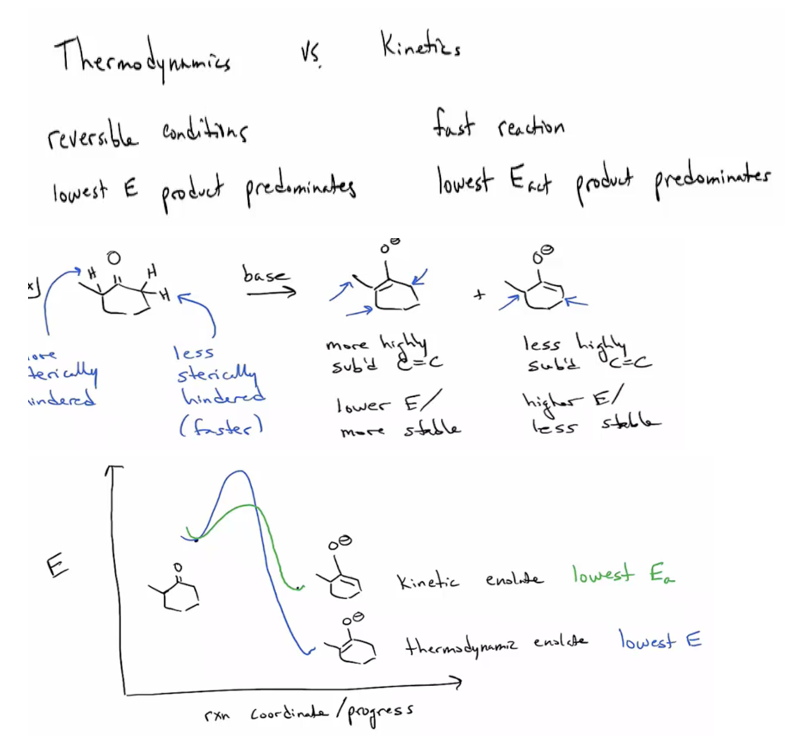 Thermodynamics vs. Kinetics
reversible conditions fast reaction
lowest E product predominates lowest Eact product predominates
O
H H
x) H base O⊖ + O⊖
ore less more highly less highly
terically sterically sub'd C=C sub'd C=C
indered hindered lower E/ higher E/
(faster) more stable less stable
E
O O⊖ kinetic enolate lowest Ea
O⊖ thermodynamic enolate lowest E
rxn coordinate/progress